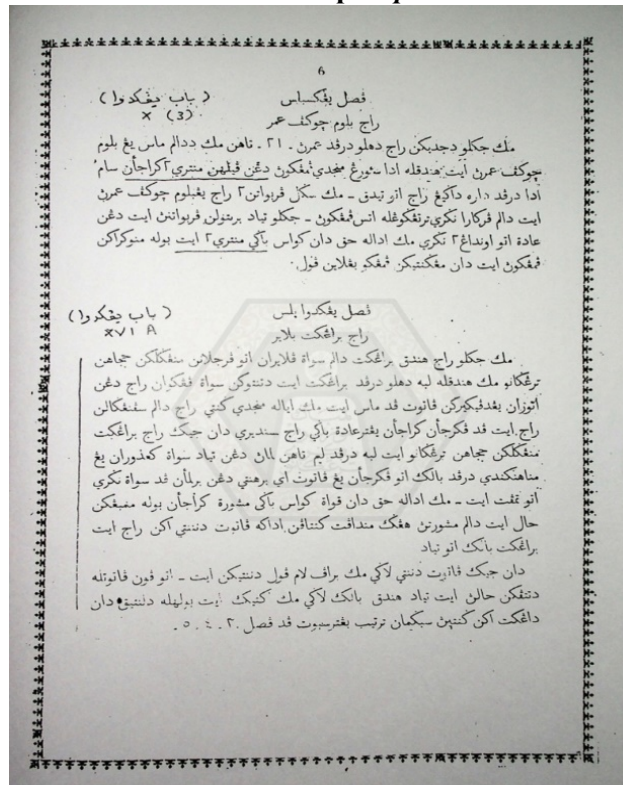 6
فصل يڠكسبلس
( باب يڠكدوا )
راج بلوم چوكف عمر
X (3)
مك جكلو دجديكن راج دهلو درفد عمرڽ ـ ٢١ ـ تاهن مك ددالم ماس يڠ بلوم
چوكف عمرڽ ايت هندقله ادا سئورڠ منجدي ڤمڠكون دڠن ڤيلهن منتري٢ كراجأن سام
ادا درفد داره داڬيڠ راج اتو تيدق ـ مك سكل ڤربواتن٢ راج يڠبلوم چوكف عمرڽ
ايت دالم ڤركارا نڬري ترتڠڬوڠله اتس ڤمڠكون ـ جكلو تياد بربتولن ڤربواتنڽ ايت دڠن
عادة اتو اونداڠ٢ نڬري مك اداله حق دان كواس باڬي منتري٢ ايت بوله منوكركن
ڤمڠكون ايت دان مڠڬنتيكن ڤمڠكو يڠلاين ڤول.
فصل يڠكدوا بلس
( باب يڠكدوا )
راج براڠكت بلاير
XVI A
مك جكلو راج هندق براڠكت دالم سوات ڤلايران اتو ڤرجلانن منڠڬلكن ججاهن
ترڠڬانو مك هندقله لبه دهلو درفد براڠكت ايت دتنتوكن سوات ڤڠكوان راج دڠن
اتوران يڠدڤيكيركن ڤاتوت ڤد ماس ايت مك اياله منجدي ڬنتي راج دالم سڤنڠڬالن
راج ايت ڤد ڤكرجأن كراجأن يڠترعادة باڬي راج سنديري دان جيك راج براڠكت
منڠڬلكن ججاهن ترڠڬانو ايت لبه درفد ليم تاهن لماڽ دڠن تياد سوات كعذوران يڠ
مناهنكندي درفد باليك اتو ڤكرجأن يڠ ڤاتوت اي برهنتي دڠن برلمأن ڤد سوات نڬري
اتو تمڤت ايت ـ مك اداله حق دان قوات كواس باڬي مشورة كراجأن بوله منيمبڠكن
حال ايت دالم مشورتڽ هڠڬ منداڤت كتتاڤن اداكه ڤاتوت دننتي اكن راج ايت
براڠكت باليك اتو تياد
دان جيك ڤاتوت دننتي لاڬي مك براڤ لام ڤول دننتيكن ايت ـ اتو ڤون ڤاتوتله
دتتڤكن حالڽ ايت تياد هندق باليك لاڬي مك كتيك ايت بولهله دلنتيق دان
داڠكت اكن ڬنتيڽ سبڬيمان ترتيب يڠترسبوت ڤد فصل .٢ .٤ .٥.